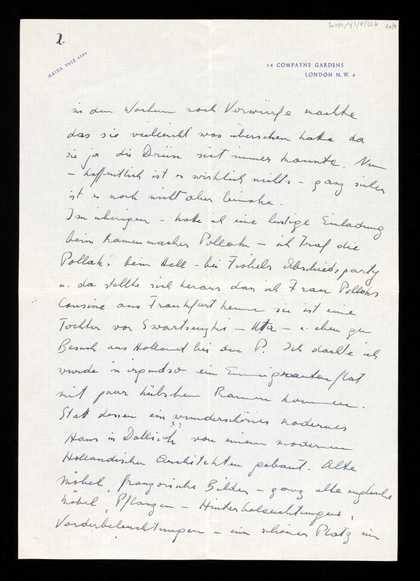 2.
MAIDA VALE
14 COMPAYNE GARDENS
LONDON N.W. 6
in den Wochen noch Vorwürfe machte
das sie vielleicht was übersehen habe da
sie ja die Drüse seit immer kannte. Nun
– hoffentlich ist es wirklich nichts – ganz sicher
ist es noch nicht aber beinahe.
Im übrigen – hatte ich eine lustige Einladung
beim Rahmenmacher Pollak – ich traf die
Pollaks beim Hell – bei Fröhels Abschiedsparty
u. da stellte sich heraus das ich Frau Pollaks
Cousine aus Frankfurt kenne sie ist eine
Tochter von – – u. eben zu
Besuch aus Holland bei den P. Ich dachte ich
würde in irgendso ein Emmigranten flat
mit paar hübschen Rahmen kommen.
Statt dessen ein wunderschönes modernes
Haus in von einem modernen
Holländischen Architekten gebaut. Alte
Möbel, französische Bilder – ganz alte englische
Möbel, Pflanzen – Hinterbeleuchtungen,
Vorderbeleuchtungen – ein schöner Platz im